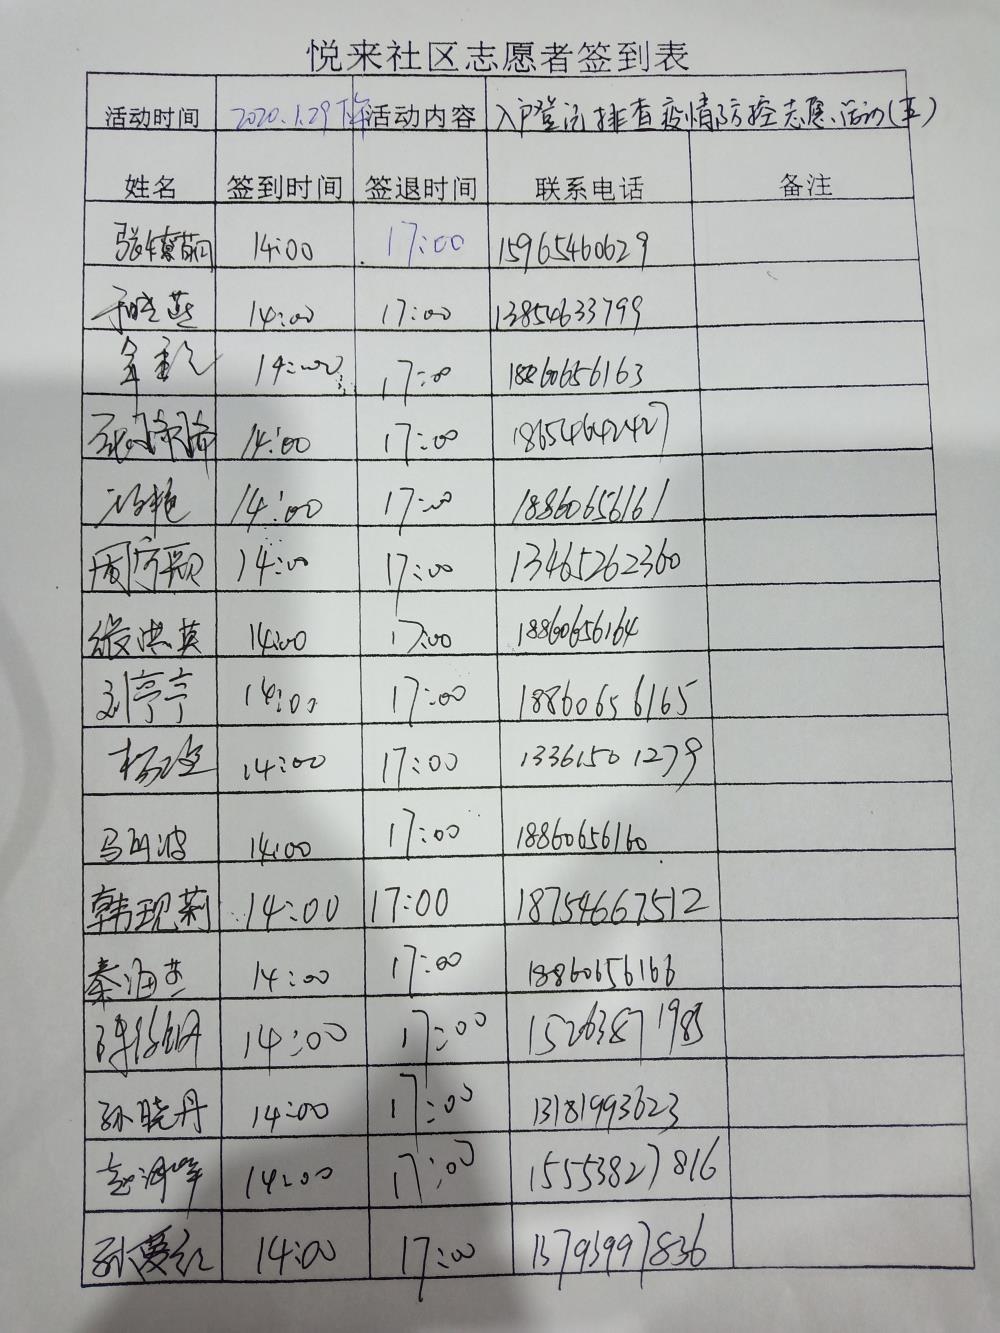 悦来社区志愿者签到表
活动时间 2020.1.29下午 活动内容 入户登记排查疫情防控志愿活动(五)
姓名 签到时间 签退时间 联系电话 备注
14:00 17:00 15965460629
于晓燕 14:00 17:00 13854633799
14:00 17:00 18860656163
14:00 17:00 18654642427
14:00 17:00 18860656161
14:00 17:00 13465262360
段洪英 14:00 17:00 18860656164
刘亭亭 14:00 17:00 18860656165
14:00 17:00 13361501279
14:00 17:00 18860656160
韩现莉 14:00 17:00 18754667512
秦海燕 14:00 17:00 18860656166
14:00 17:00 15263871983
孙晓丹 14:00 17:00 13181993623
14:00 17:00 15553827816
孙爱红 14:00 17:00 13793997836